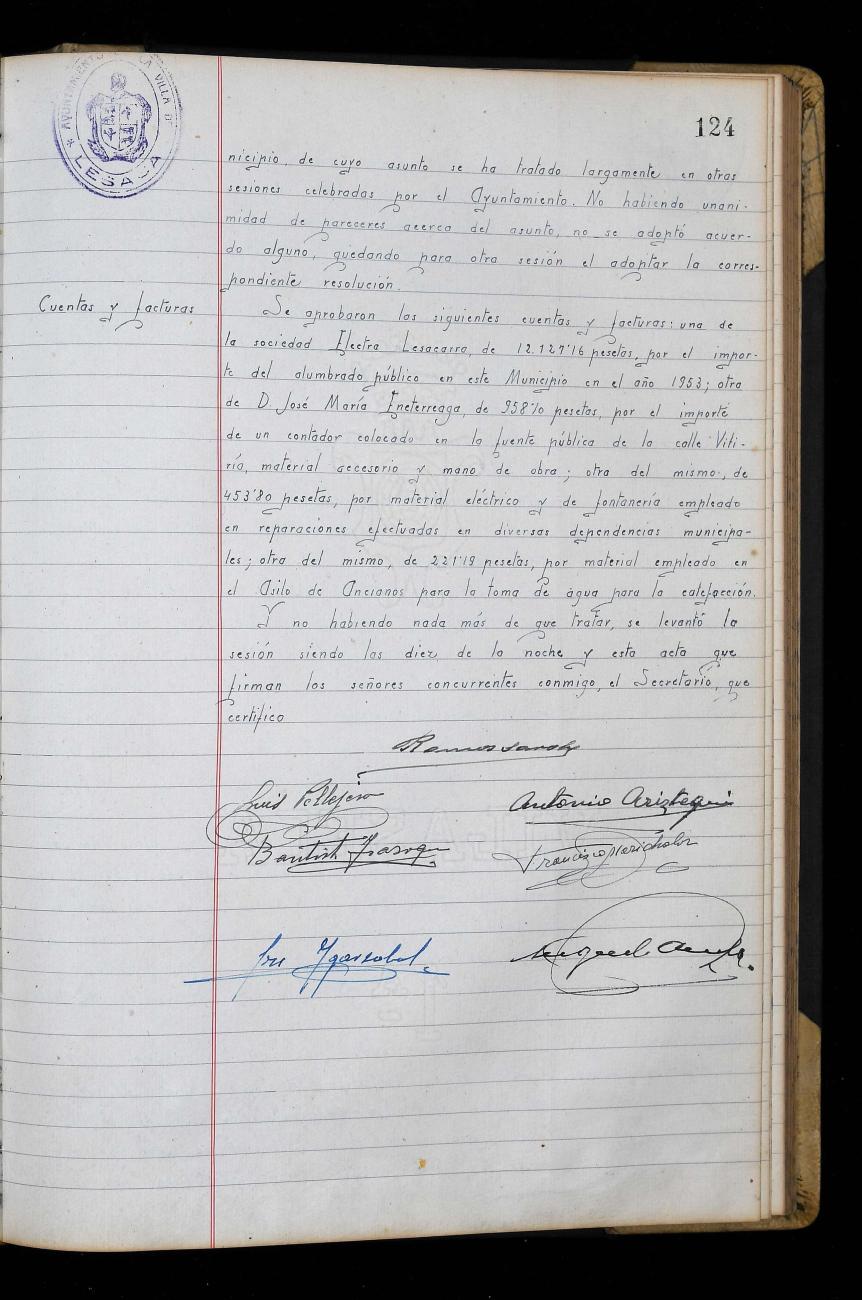 AYUNTAMIENTO DE LA VILLA DE
LESACA
124
nicipio, de cuyo asunto se ha tratado largamente en otras
sesiones celebradas por el Ayuntamiento. No habiendo unani-
midad de pareceres acerca del asunto, no se adoptó acuer-
do alguno, quedando para otra sesión el adoptar la corres-
pondiente resolución.
Cuentas y facturas
Se aprobaron las siguientes cuentas y facturas: una de
la sociedad Electra Lesacarra, de 12.127'16 pesetas, por el impor-
te del alumbrado público en este Municipio en el año 1953; otra
de D. José María Eneterreaga, de 958'10 pesetas, por el importe
de un contador colocado en la fuente pública de la calle Viti-
ría, material accesorio y mano de obra; otra del mismo, de
453'80 pesetas, por material eléctrico y de fontanería empleado
en reparaciones efectuadas en diversas dependencias municipa-
les; otra del mismo, de 221'19 pesetas, por material empleado en
el Asilo de Ancianos para la toma de agua para la calefacción.
Y no habiendo nada más de que tratar, se levantó la
sesión siendo las diez de la noche y esta acta que
firman los señores concurrentes conmigo, el Secretario, que
certifico
Luis Pellejero
Antonio Ariztegui
Francisco Marichalar
Miguel